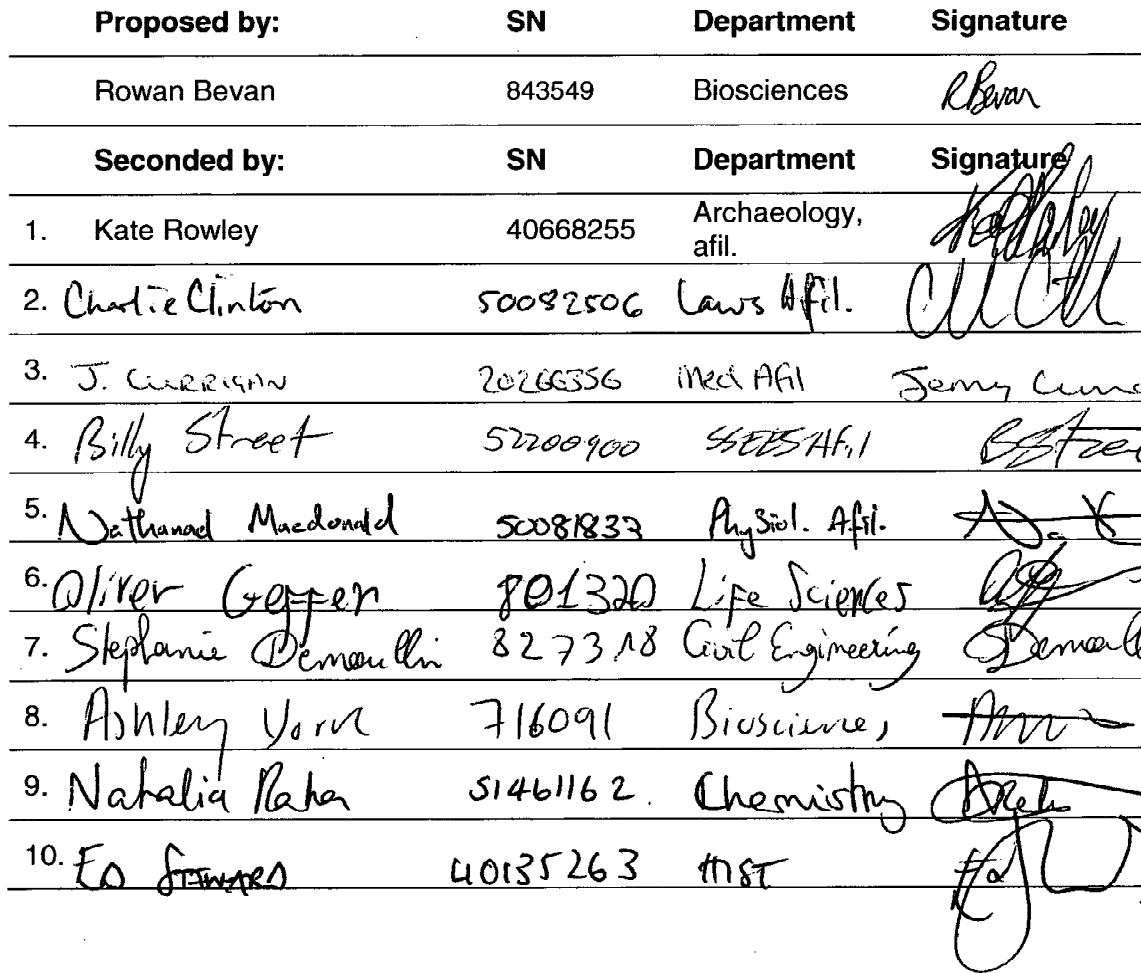 Proposed by: SN Department Signature
Rowan Bevan 843549 Biosciences RBevan
Seconded by: SN Department Signature
1. Kate Rowley 40668255 Archaeology, afil.
2. Charlie Clinton 50082506 Laws Afil.
3. J. CURRIGAN 20266356 Med Afil Jenny
4. Billy Street 52200900 SSEES Afil BStree
5. Macdonald 50081837 Afil.
6. Oliver Geffen 801320 Life Sciences
7. Stephanie Demoullin 827318 Civil Engineering
8. Ashley York 716091 Biosciences
9. Natalia 51461162. Chemistry
10. ED STEWARD 40135263 HIST Ed